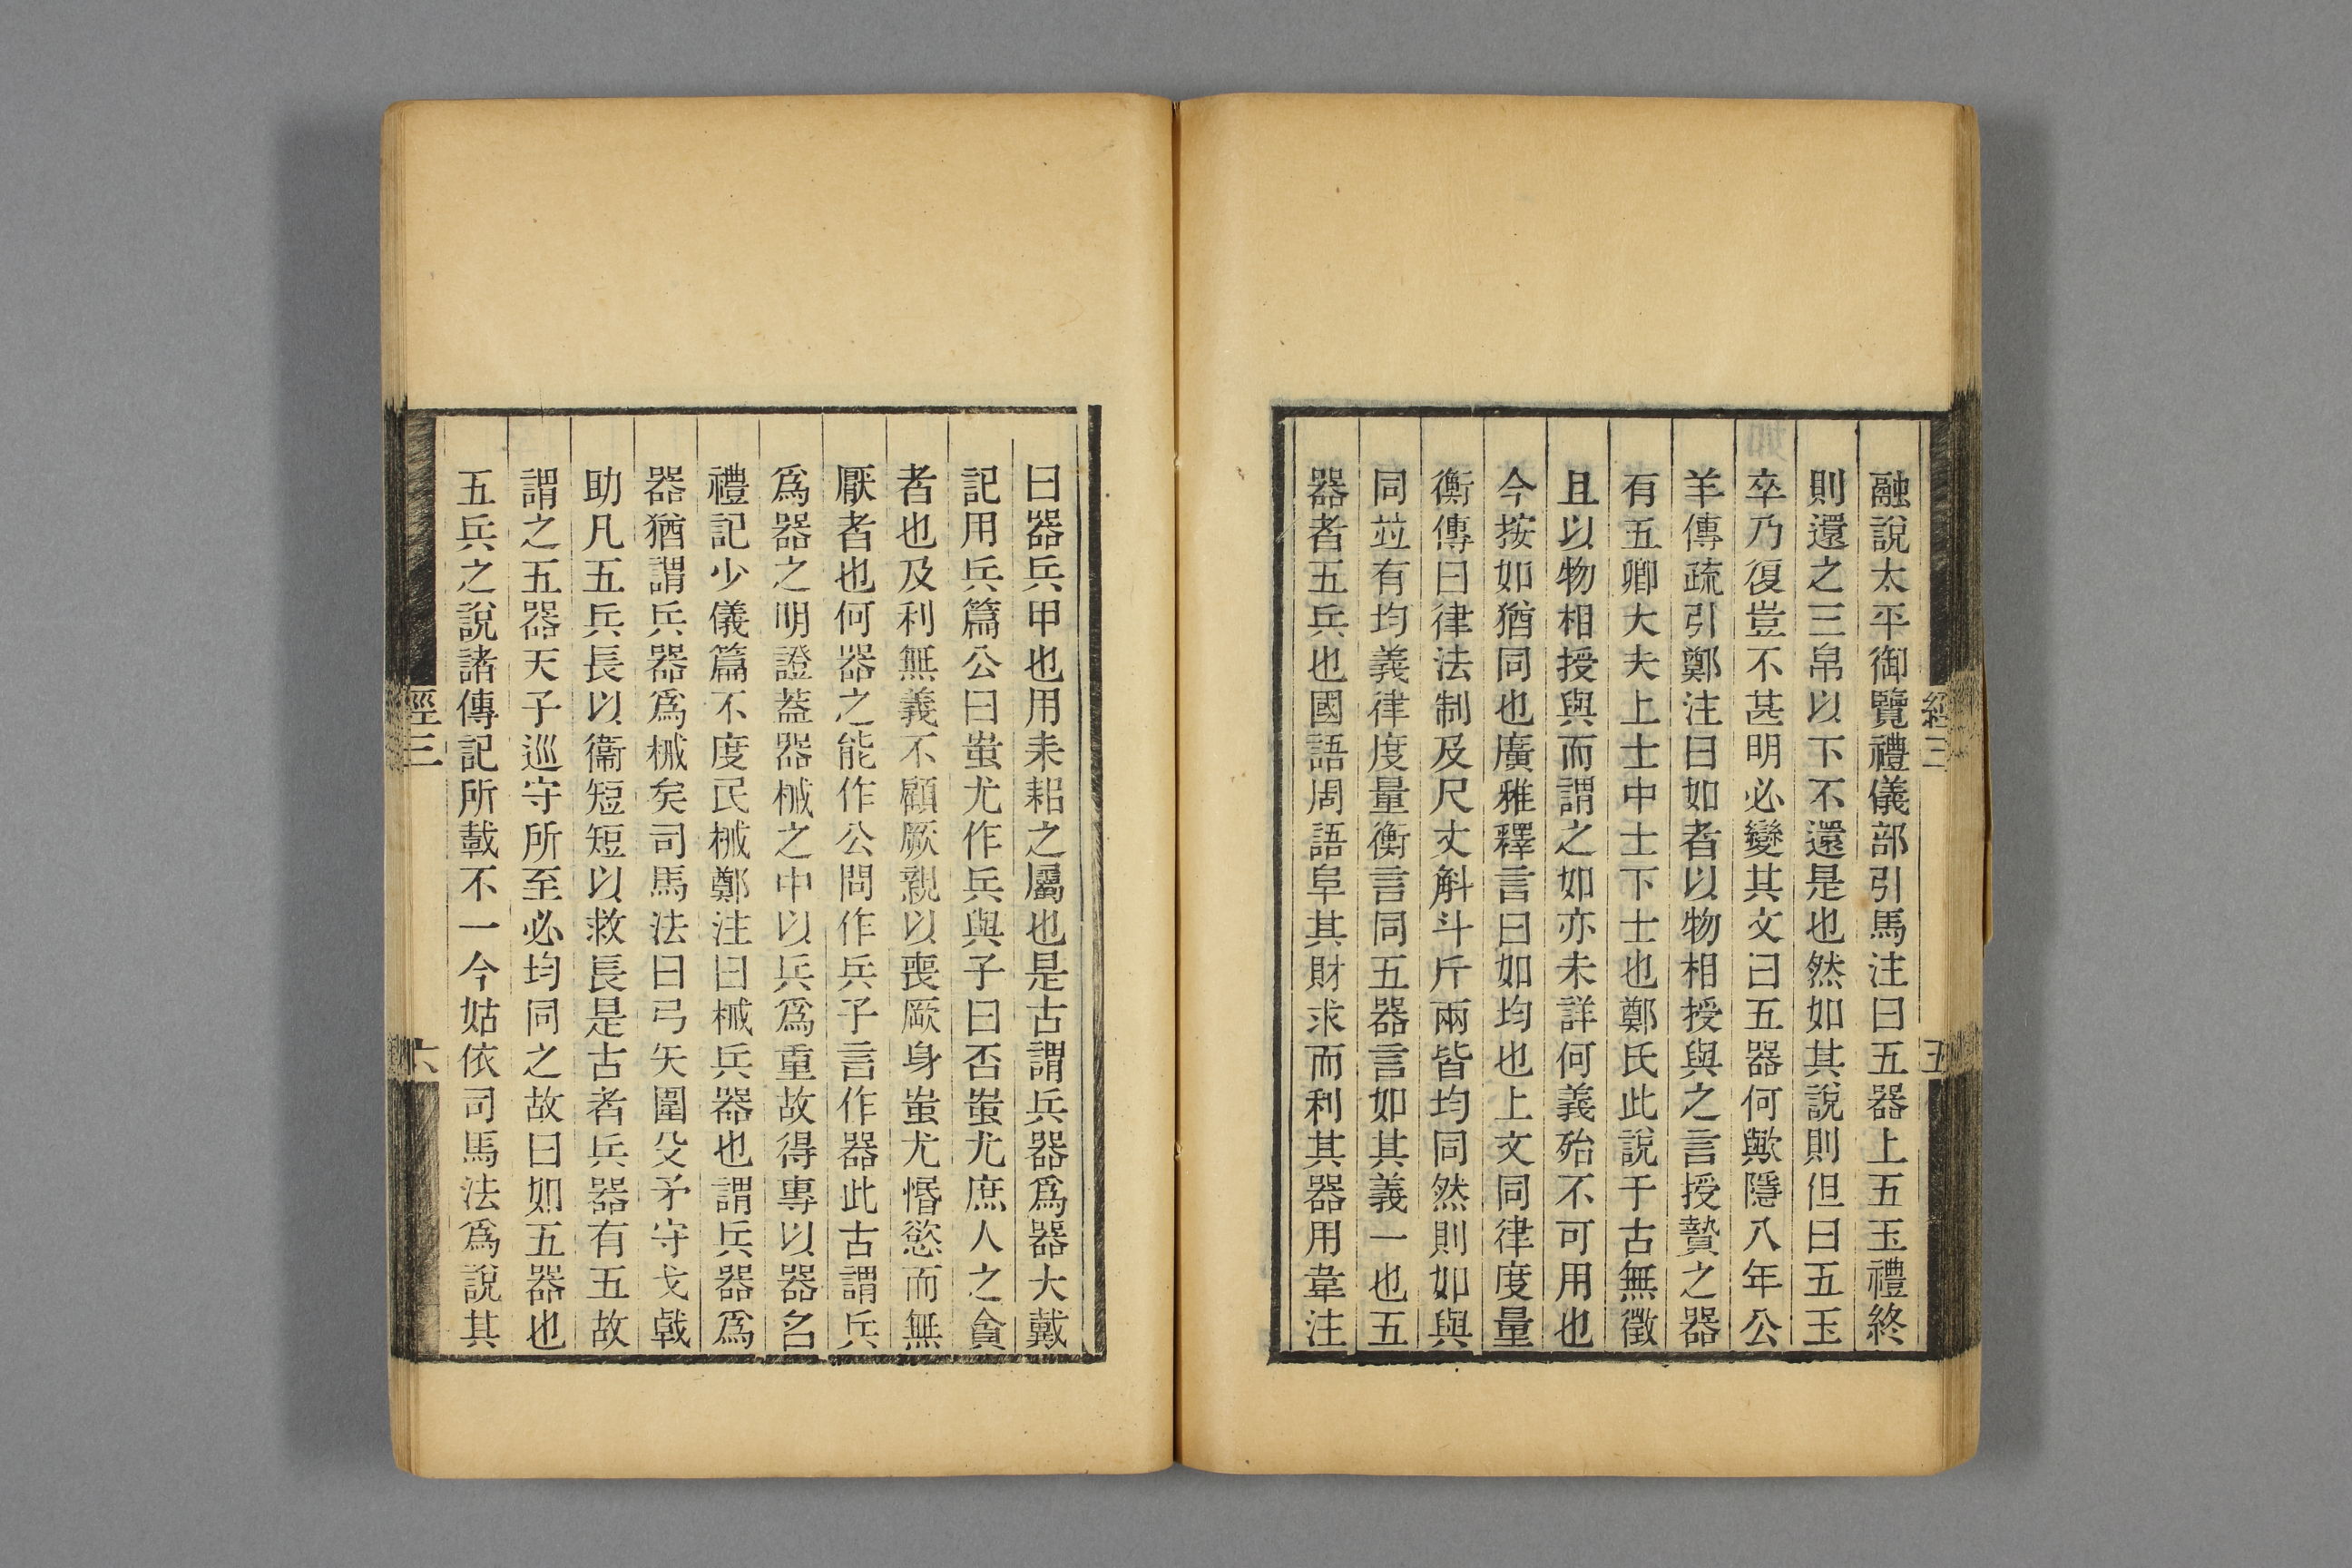 融說太平御覽禮儀部引馬注曰五器上五玉禮終
則還之三帛以下不還是也然如其說則但曰五玉
卒乃復豈不甚明必變其文曰五器何歟隱八年公
羊傳疏引鄭注曰如者以物相授與之言授贄之器
有五卿大夫上士中士下士也鄭氏此說于古無徵
且以物相授與而謂之如亦未詳何義殆不可用也
今按如猶同也廣雅釋言曰如均也上文同律度量
衡傳曰律法制及尺丈斛斗斤兩皆均同然則如與
同竝有均義律度量衡言同五器言如其義一也五
器者五兵也國語周語阜其財求而利其器用韋注
經三
五
曰器兵甲也用耒耜之屬也是古謂兵器爲器大戴
記用兵篇公曰蚩尤作兵與子曰否蚩尤庶人之貪
者也及利無義不顧厥親以喪厥身蚩尤惛慾而無
厭者也何器之能作公問作兵子言作器此古謂兵
爲器之明證蓋器械之中以兵爲重故得專以器名
禮記少儀篇不度民械鄭注曰械兵器也謂兵器爲
器猶謂兵器爲械矣司馬法曰弓矢圍殳矛守戈戟
助凡五兵長以衞短短以救長是古者兵器有五故
謂之五器天子巡守所至必均同之故曰如五器也
五兵之說諸傳記所載不一今姑依司馬法爲說其
經三
六